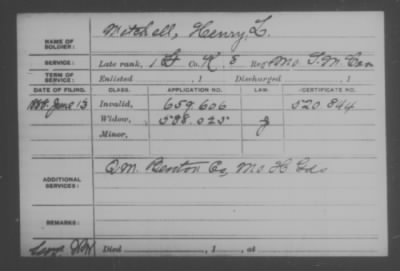 NAME OF SOLDIER: Mitchell, Henry L.
SERVICE: Late rank, 1 Lt Co. K, 5 Reg't Mo. S.M. Cav
TERM OF SERVICE: Enlisted , 1 Discharged , 1
DATE OF FILING. CLASS. APPLICATION NO. LAW. CERTIFICATE NO.
1888. June 13 Invalid, 659.606 520844
Widow, 538.025
Minor,
ADDITIONAL SERVICES: Q.M. Benton Co, Mo H Gds
REMARKS:
Died , 1 , at